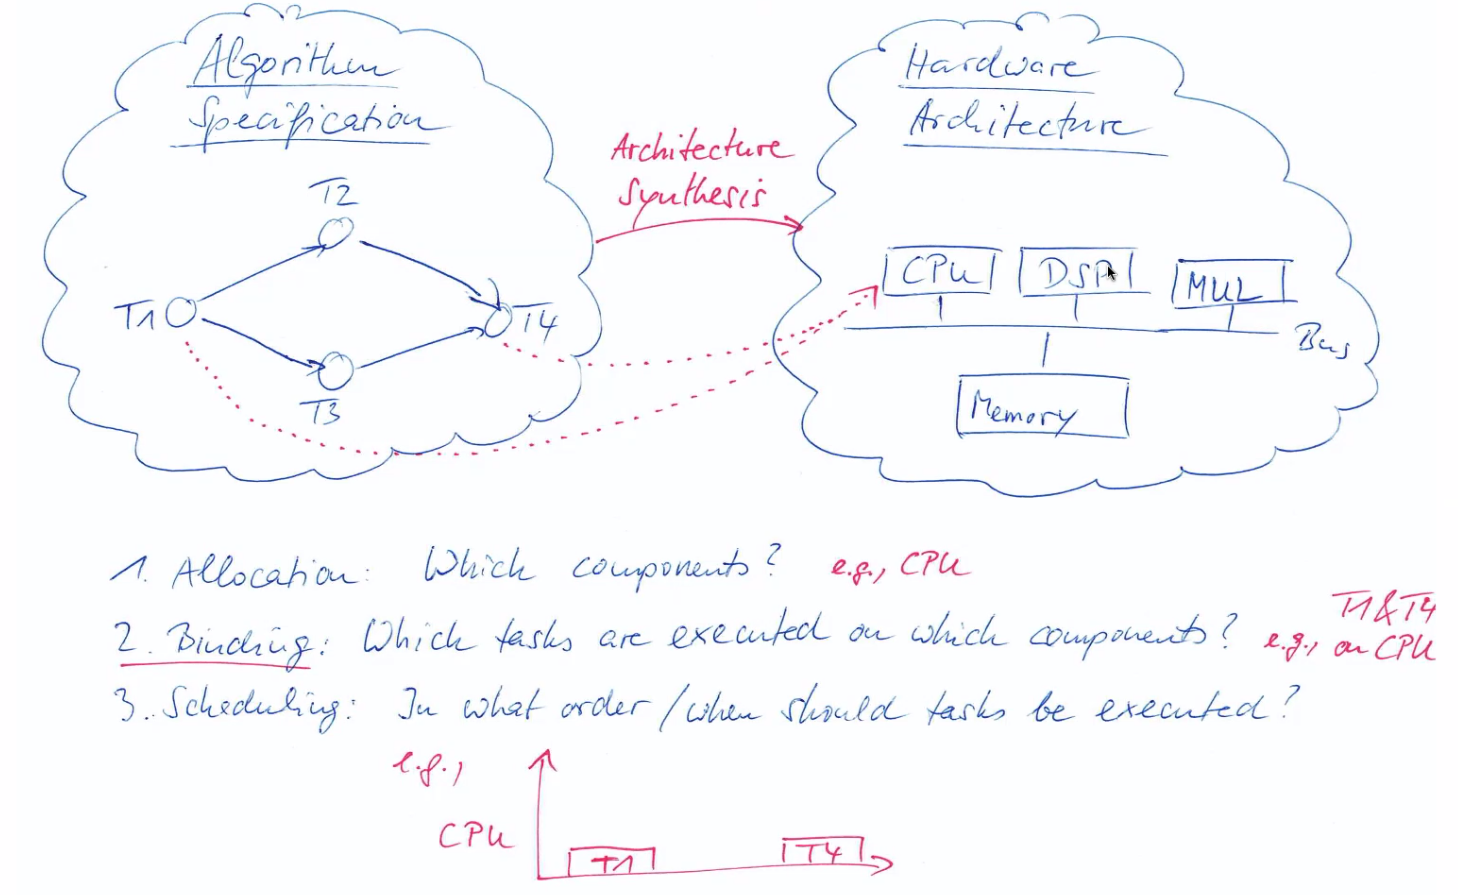 Algorithm
Specification
T2
T1
T4
T3
Architecture
Synthesis
Hardware
Architecture
CPU
DSP
MUL
Bus
Memory
1. Allocation: Which components? e.g., CPU
2. Binding: Which tasks are executed on which components? e.g., T1&T4 on CPU
3. Scheduling: In what order/when should tasks be executed?
e.g.,
CPU
T1
T4